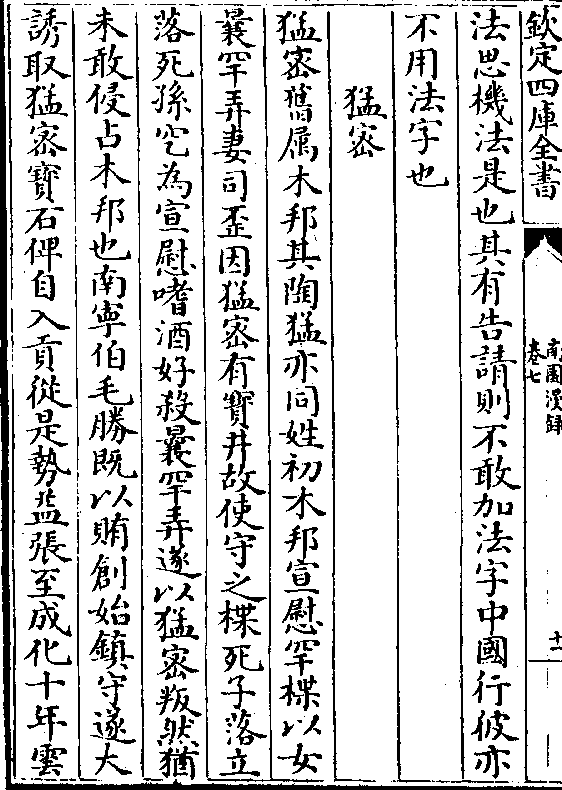 欽定四庫全書
南園漫錄
卷七
十一
法思機法是也其有告請則不敢加法字中國行彼亦
不用法字也
猛密
猛密舊屬木邦其陶猛亦同姓初木邦宣慰罕楪以女
曩罕弄妻司歪因猛密有寶井故使守之楪死子落立
落死孫空為宣慰嗜酒好殺曩罕弄遂以猛密叛然猶
未敢侵占木邦也南寧伯毛勝既以賄創始鎮守遂大
誘取猛密寶石俾自入貢從是勢益張至成化十年雲